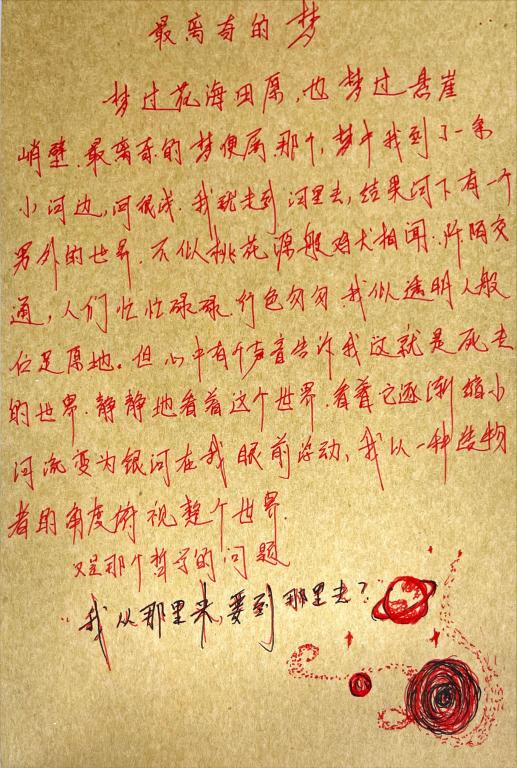 最离奇的梦
梦过花海田原,也梦过悬崖
峭壁.最离奇的梦便属那个,梦中我到了一条
小河边,河很浅.我就走到河里去,结果河下有一个
另外的世界.不似桃花源般鸡犬相闻.阡陌交
通,人们忙忙碌碌行色匆匆.我似透明人般
伫足原地。但心中有个声音告诉我这就是死去
的世界.静静地看着这个世界.看着它逐渐缩小
河流变为银河在我眼前浮动,我以一种造物
者的角度俯视整个世界.
又是那个哲学的问题
我从那里来,要到那里去?